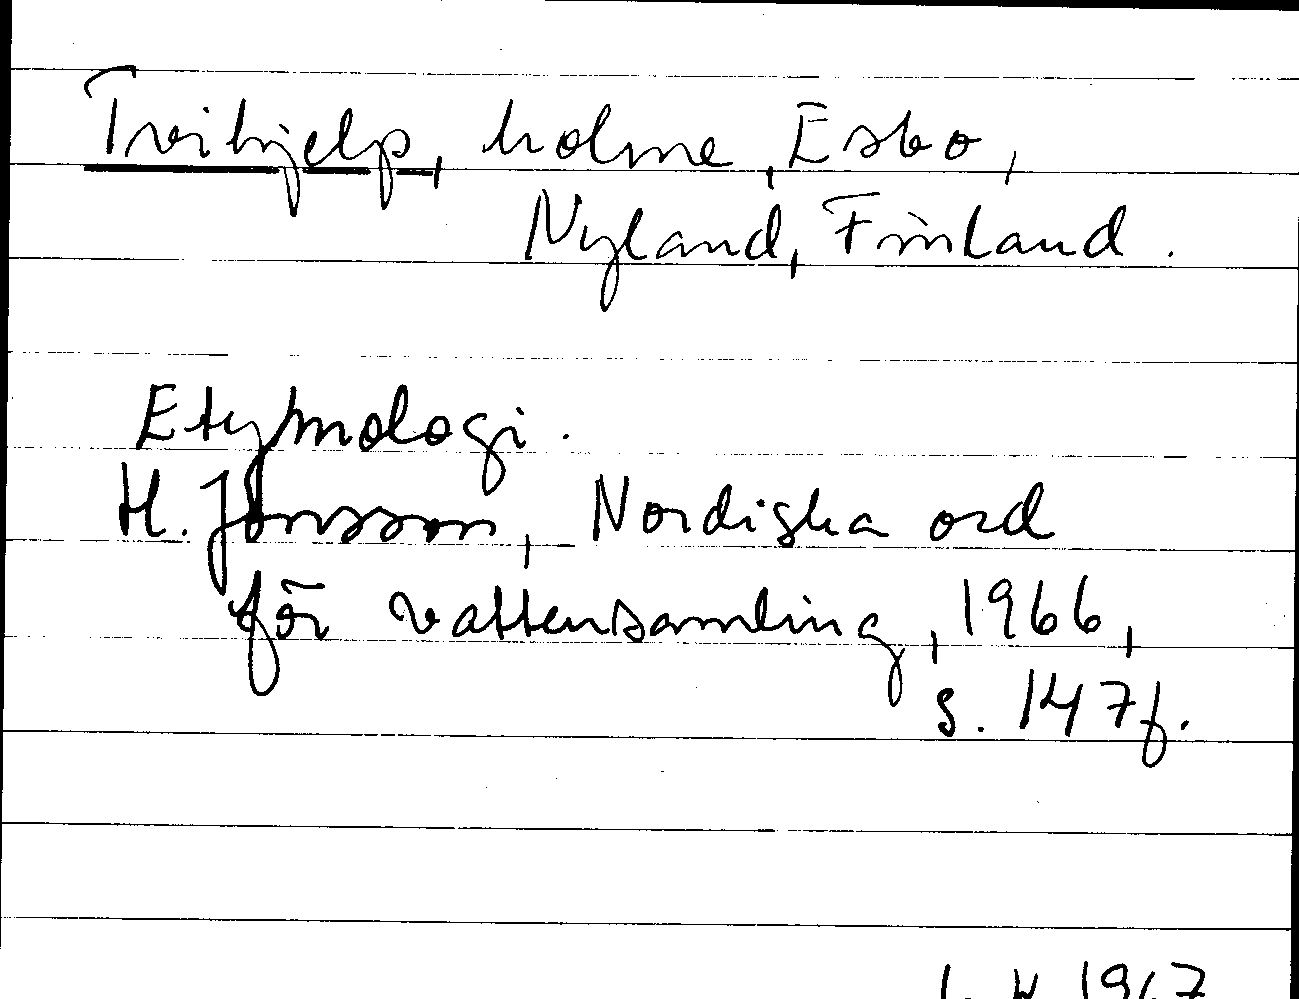 Tvihjelp, holme, Esbo,
Nyland, Finland.
Etymologi.
H. Jonsson, Nordiska ord
för vattensamling, 1966,
s. 147 f.
1967